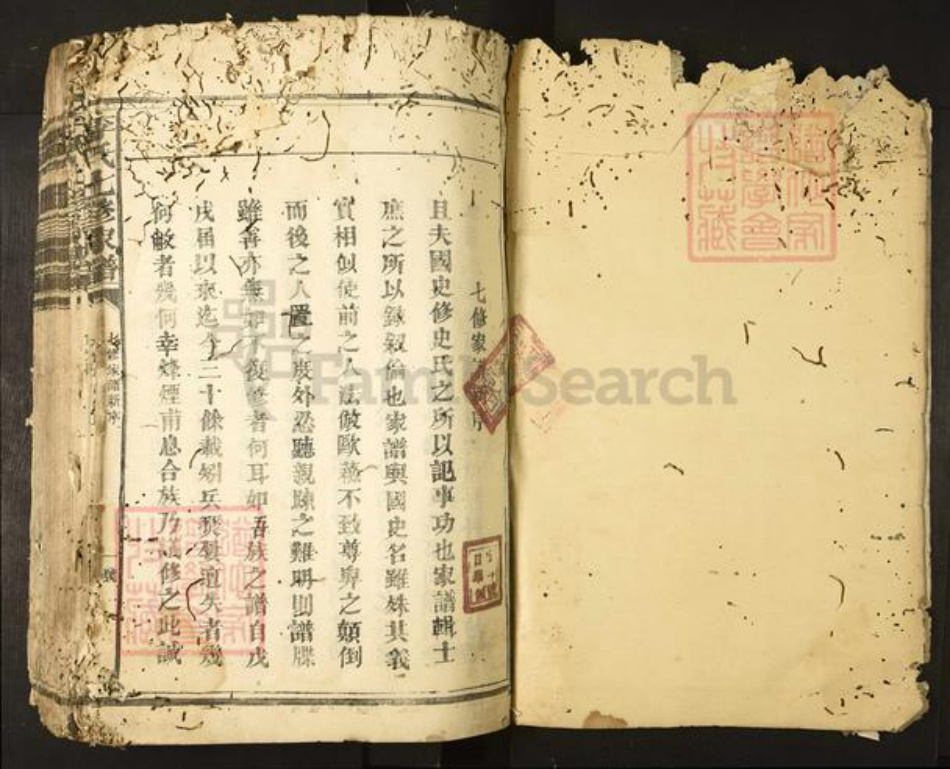 七修家譜 序
且夫國史修史氏之所以記事功也家譜輯士
庶之所以録叙倫也家譜與國史名雖殊其義
實相似使前之人法倣歐蘇不致尊卑之顛倒
而後之人置之度外恐聽親疎之難明則譜牒
雖善亦無 不復 者何耳如吾族之譜自戊
戌届以來迄今二十餘載 兵 遺失者幾
何敝者幾何幸烽煙甫息合族乃 修之此誠
氏七修家譜
七修家譜新序
一號
FamilySearch